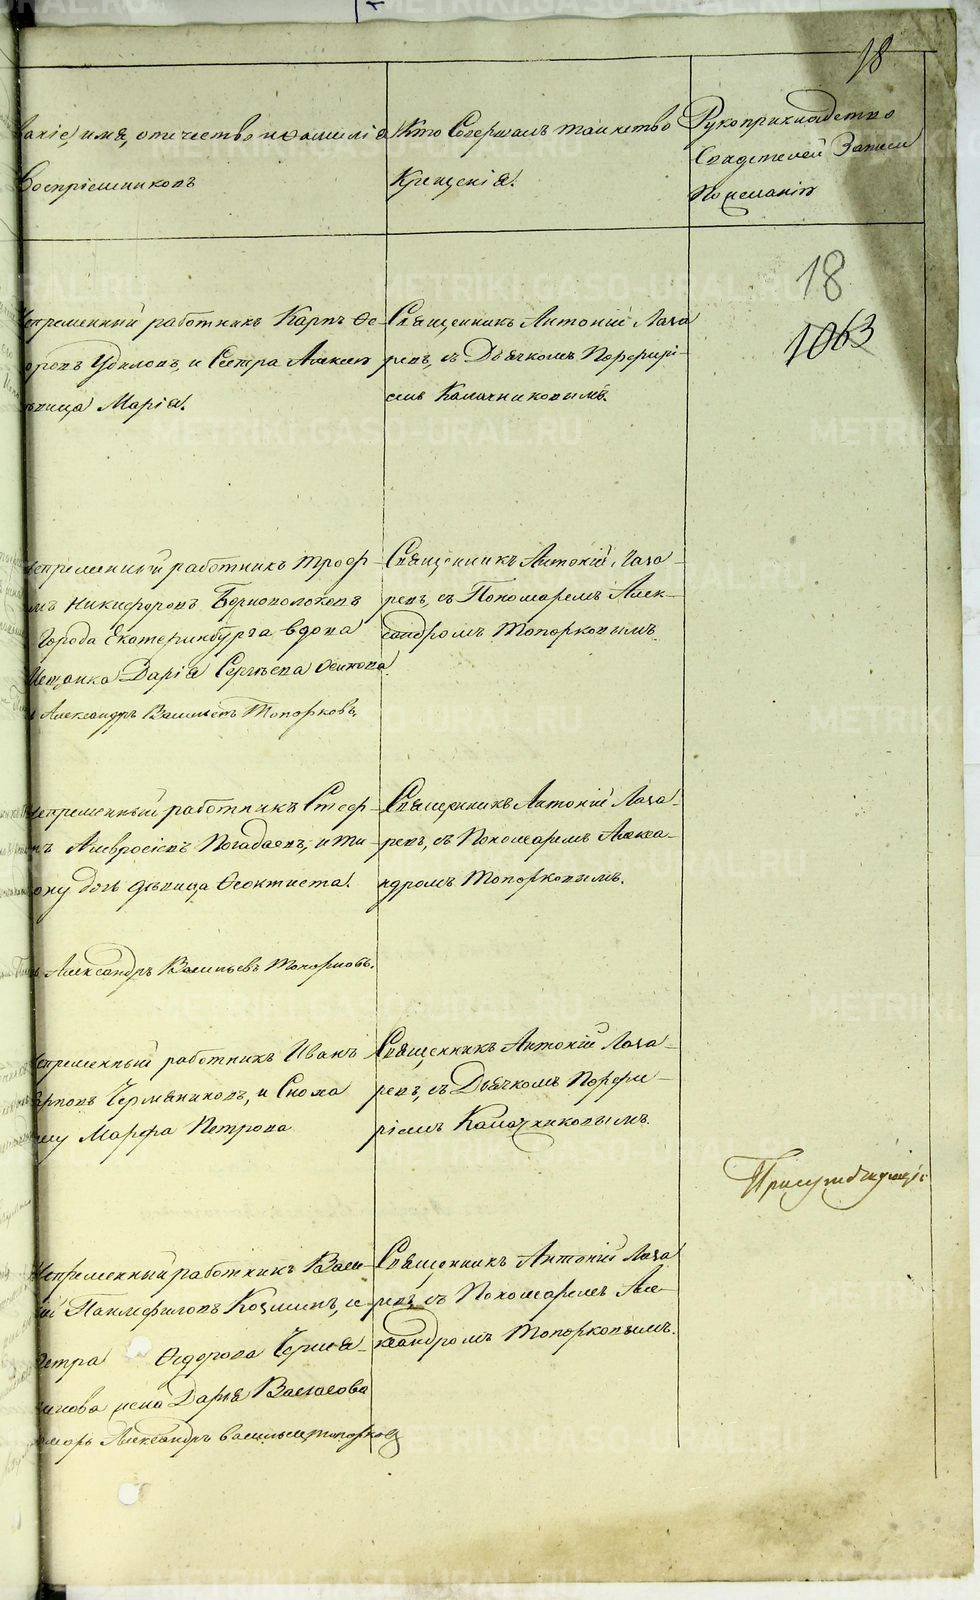 18
званіе, имя, отчество и фамилія
Воспріемниковъ
Кто Совершалъ таинство
Крещенія.
Рукоприкладство
Свидетелей Записи
По желанію
18
1063
Непременный работникъ Карпъ Ѳе-
доровъ Удиловъ, и Сестра Алексея
девица Марія.
Священникъ Антоній Лаза
ревъ, съ Дьячкомъ Порфирі-
емъ Калачниковымъ.
Непременный работникъ Троф-
имъ Никифоровъ
Города Екатеринбурга вдова
Мещанка Дарія Сергѣева Осипова
Александръ Васильевъ Топорковъ.
Священникъ Антоній Лаза-
ревъ, съ Пономаремъ Алек-
сандромъ Топорковымъ.
Непременный работникъ Стеф-
анъ Амвросіевъ Погадаевъ, и
дочь дѣвица Ѳеоктиста.
Александръ Васильевъ Топорковъ.
Священникъ Антоній Лаза-
ревъ, съ Пономаремъ Алекса-
ндромъ Топорковымъ.
Непременный работникъ Иванъ
Карповъ Чермяниновъ, и Сноха
ему Марфа Петрова
Священникъ Антоній Лаза-
ревъ, съ Дьячкомъ Порфи-
ріемъ Калачниковымъ.
Непременный работникъ Васи-
лій Панфиловъ Козминъ, и
Сестра Ѳедорова
жена Дарья Васильева
Пономарь Александръ Васильевъ Топорковъ
Священникъ Антоній Лаза
ревъ, съ Пономаремъ Але-
ксандромъ Топорковымъ.
METRIKI.GASO-URAL.RU